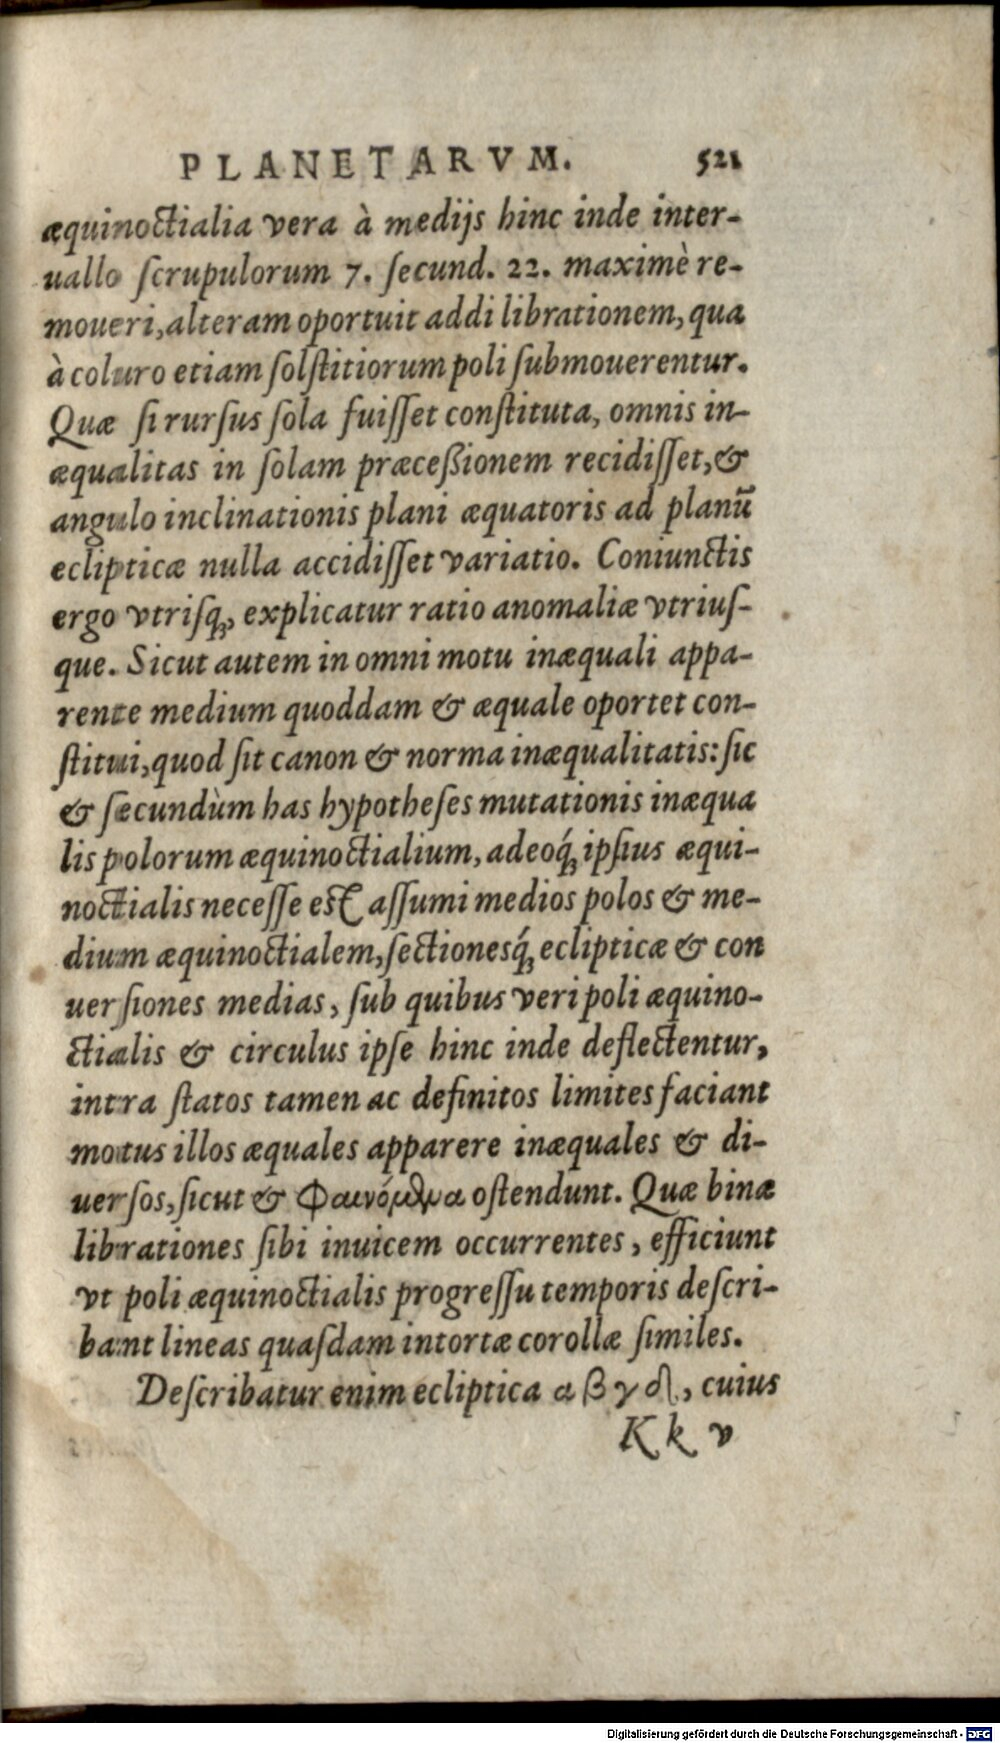 PLANETARVM. 521
æquinoctialia vera à medijs hinc inde inter-
uallo ſcrupulorum 7. ſecund. 22. maximè re-
moueri, alteram oportuit addi librationem, qua
à coluro etiam ſolſtitiorum poli ſubmouerentur.
Quæ ſi rurſus ſola fuiſſet conſtituta, omnis in-
æqualitas in ſolam præceßionem recidiſſet, &
angulo inclinationis plani æquatoris ad planū
eclipticæ nulla accidiſſet variatio. Coniunctis
ergo vtriſq́, explicatur ratio anomaliæ vtriuſ-
que. Sicut autem in omni motu inæquali appa-
rente medium quoddam & æquale oportet con-
ſtitui, quod ſit canon & norma inæqualitatis: ſic
& ſecundùm has hypotheſes mutationis inæqua
lis polorum æquinoctialium, adeoq́ ipſius æqui-
noctialis neceſſe eſt aſſumi medios polos & me-
dium æquinoctialem, ſectionesq́ eclipticæ & con
uerſiones medias, ſub quibus veri poli æquino-
ctialis & circulus ipſe hinc inde deflectentur,
intra ſtatos tamen ac definitos limites faciant
motus illos æquales apparere inæquales & di-
uerſos, ſicut & Φαινόμενα oſtendunt. Quæ binæ
librationes ſibi inuicem occurrentes, efficiunt
vt poli æquinoctialis progreſſu temporis deſcri-
bant lineas quaſdam intortæ corollæ ſimiles.
Deſcribatur enim ecliptica α β γ δ, cuius
Kk v
Digitalisierung gefördert durch die Deutsche Forschungsgemeinschaft - DFG